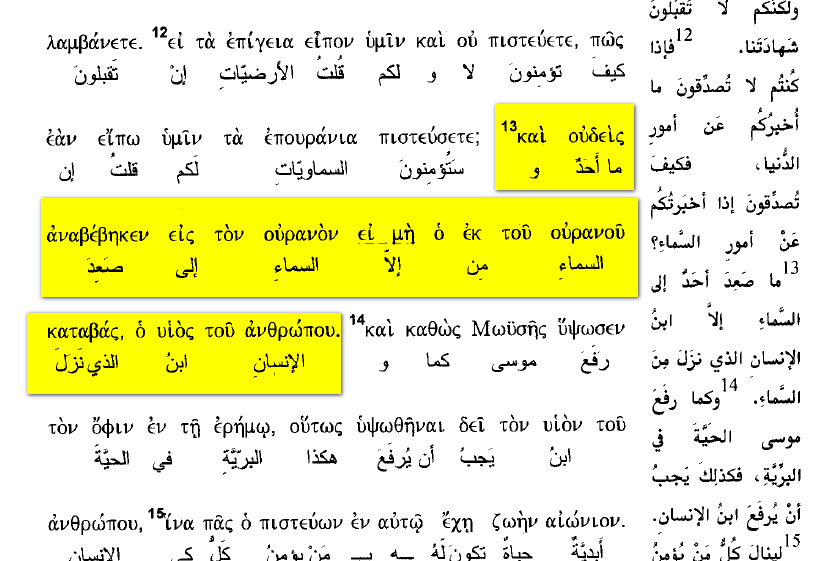 λαμβάνετε. 12εἰ τὰ ἐπίγεια εἶπον ὑμῖν καὶ οὐ πιστεύετε, πῶς
كيفَ تؤمِنونَ لا و لكم قُلتُ الأرضيّاتِ إنْ تَقبلونَ
ἐὰν εἴπω ὑμῖν τὰ ἐπουράνια πιστεύσετε; 13καὶ οὐδεὶς
ما أَحَدٌ و سَتُؤمِنونَ السماويّاتِ لَكم قلتُ إن
ἀναβέβηκεν εἰς τὸν οὐρανὸν εἰ μὴ ὁ ἐκ τοῦ οὐρανοῦ
السماءِ مِن إلاَّ السماءِ إلى صَعِدَ
καταβάς, ὁ υἱὸς τοῦ ἀνθρώπου. 14καὶ καθὼς Μωϋσῆς ὕψωσεν
رفَعَ موسى كما و الإنسانِ ابنُ الذي نَزَلَ
τὸν ὄφιν ἐν τῇ ἐρήμῳ, οὕτως ὑψωθῆναι δεῖ τὸν υἱὸν τοῦ
ابنُ يَجِبُ أن يُرفَعَ هكذا البرّيَّةِ في الحيَّةَ
ἀνθρώπου, 15ἵνα πᾶς ὁ πιστεύων ἐν αὐτῷ ἔχῃ ζωὴν αἰώνιον.
أبديَّةٌ حياةٌ تكون لَهُ ـه بـ مَنْ يؤمِنُ كلُّ كي الإنسانِ
ولكنَّكم لا تَقبَلونَ
شَهادَتَنا. 12فإذا
كُنتُم لا تُصدِّقونَ ما
أُخبِرُكُم عَن أمورِ
الدُّنيا، فكيفَ
تُصدِّقونَ إذا أخبَرتُكُم
عَنْ أمورِ السَّماءِ؟
13ما صَعِدَ أحَدٌ إلى
السَّماءِ إلاَّ ابنُ
الإنسانِ الذي نزَلَ مِنَ
السَّماءِ. 14وكما رفَعَ
موسى الحيَّةَ في
البرِّيَّةِ، فكذلِكَ يَجبُ
أنْ يُرفَعَ ابنُ الإنسانِ.
15لينالَ كُلُّ مَنْ يُؤمِنُ